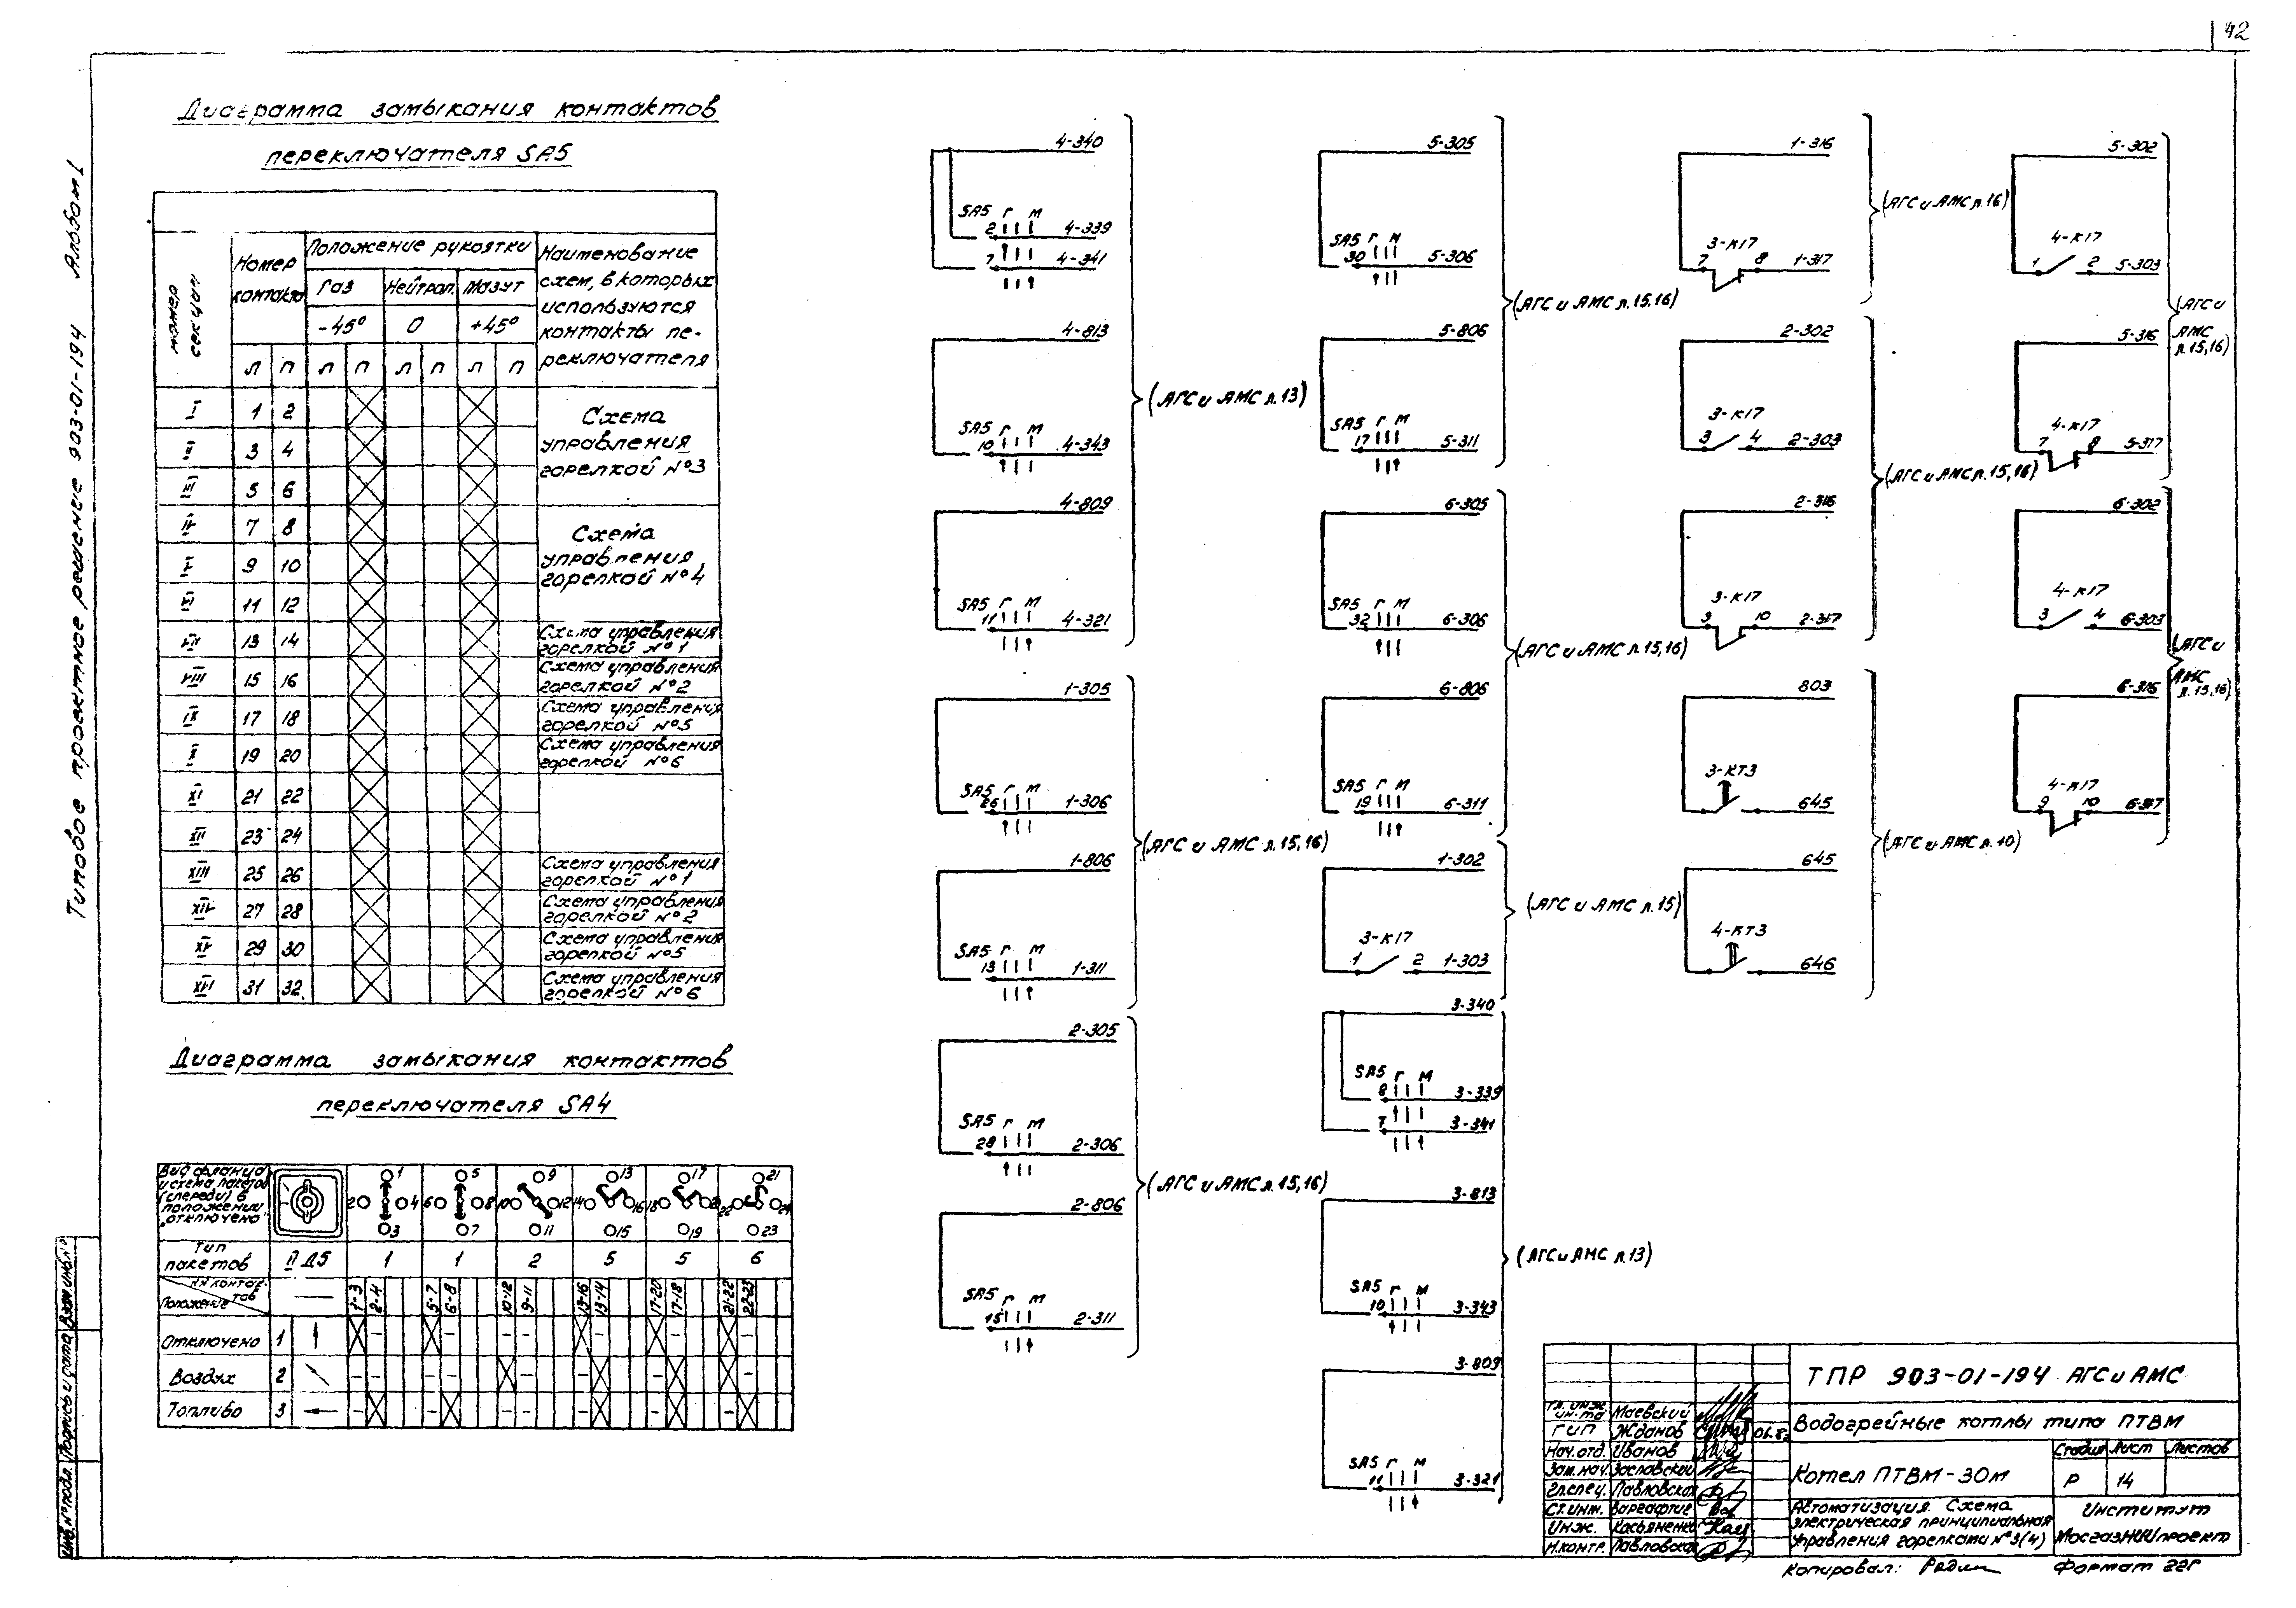 42
Типовое проектное решение 903-01-194 Альбом I
Диаграмма замыкания контактов
переключателя SA5
Номер секции
Номер контакта
Положение рукоятки
Наименование схем, в которых используются контакты переключателя
Газ Нейтрал. Мазут
-45° 0 +45°
Л П Л П Л П Л П
I 1 2 Схема управления горелкой №3
II 3 4
III 5 6
IV 7 8 Схема управления горелкой №4
V 9 10
VI 11 12
VII 13 14 Схема управления горелкой №1
VIII 15 16 Схема управления горелкой №2
IX 17 18 Схема управления горелкой №5
X 19 20 Схема управления горелкой №6
XI 21 22
XII 23 24
XIII 25 26 Схема управления горелкой №1
XIV 27 28 Схема управления горелкой №2
XV 29 30 Схема управления горелкой №5
XVI 31 32 Схема управления горелкой №6
Диаграмма замыкания контактов
переключателя SA4
Вид фланца и схема пакетов (спереди) в положении "отключено"
1 2 3 4
5 6 7 8
9 10 11 12
13 14 15 16
17 18 19
21 22 23 24
Тип пакетов II Д5 1 1 2 5 5 6
NN контактов
Положение
1-3 2-4 5-7 6-8 10-12 9-11 13-16 13-14 17-20 17-18 21-22 22-23
Отключено 1
Воздух 2
Топливо 3
4-340
SA5 Г М
2 4-339
7 4-341
4-813
SA5 Г М
10 4-343
4-809
SA5 Г М
11 4-321
(АГС и АМС л.13)
1-305
SA5 Г М
26 1-306
1-806
SA5 Г М
13 1-311
(АГС и АМС л.15,16)
2-305
SA5 Г М
28 2-306
2-806
SA5 Г М
15 2-311
(АГС и АМС л.15,16)
5-305
SA5 Г М
30 5-306
5-806
SA5 Г М
17 5-311
(АГС и АМС л.15,16)
6-305
SA5 Г М
32 6-306
6-806
SA5 Г М
19 6-311
(АГС и АМС л.15,16)
1-302
3-К17
1 2 1-303
(АГС и АМС л.15)
3-340
SA5 Г М
8 3-339
7 3-341
3-813
SA5 Г М
10 3-343
3-809
SA5 Г М
11 3-321
(АГС и АМС л.13)
1-316
3-К17
7 8 1-317
(АГС и АМС л.16)
2-302
3-К17
3 4 2-303
2-316
3-К17
9 10 2-317
(АГС и АМС л.15,16)
803
3-КТ3
645
645
4-КТ3
646
(АГС и АМС л.10)
5-302
4-К17
1 2 5-303
5-316
4-К17
7 8 5-317
(АГС и АМС л.15,16)
6-302
4-К17
3 4 6-303
6-316
4-К17
9 10 6-317
(АГС и АМС л.15,16)
ТПР 903-01-194 АГС и АМС
Водогрейные котлы типа ПТВМ
Котел ПТВМ-30м
Стадия Лист Листов
Р 14
Автоматизация. Схема электрическая принципиальная управления горелками №3(4)
Институт
Мосгазниипроект
Гл. инж. ин-та Маевский
ГИП Жданов
Нач. отд. Иванов
Зам. нач. Заславский
Гл. спец. Павловская
Ст. инж.
Инж. Касьяненко
Н. контр. Павловская
Копировал:
Формат 22г
Инв. № подл. Подпись и дата Взам. инв. №